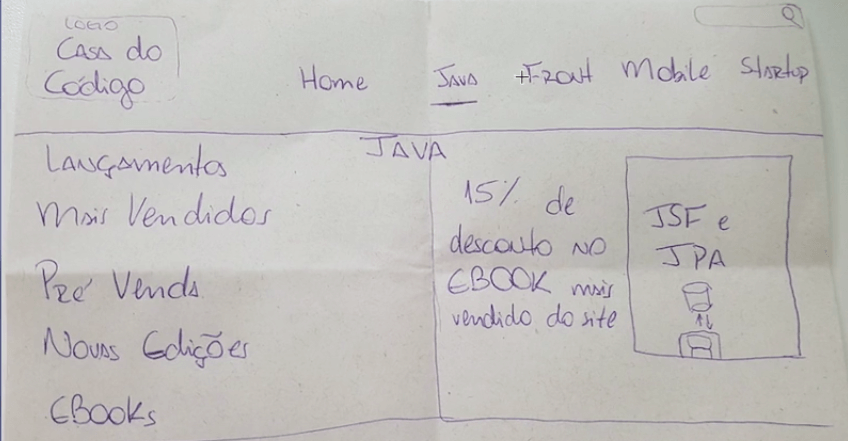 LOGO
Casa do
Código
Home JAVA +Front Mobile Startup
JAVA
Lançamentos
Mais Vendidos
Pré Venda
Novas Edições
EBooks
15% de
desconto no
EBOOK mais
vendido do site
JSF e
JPA